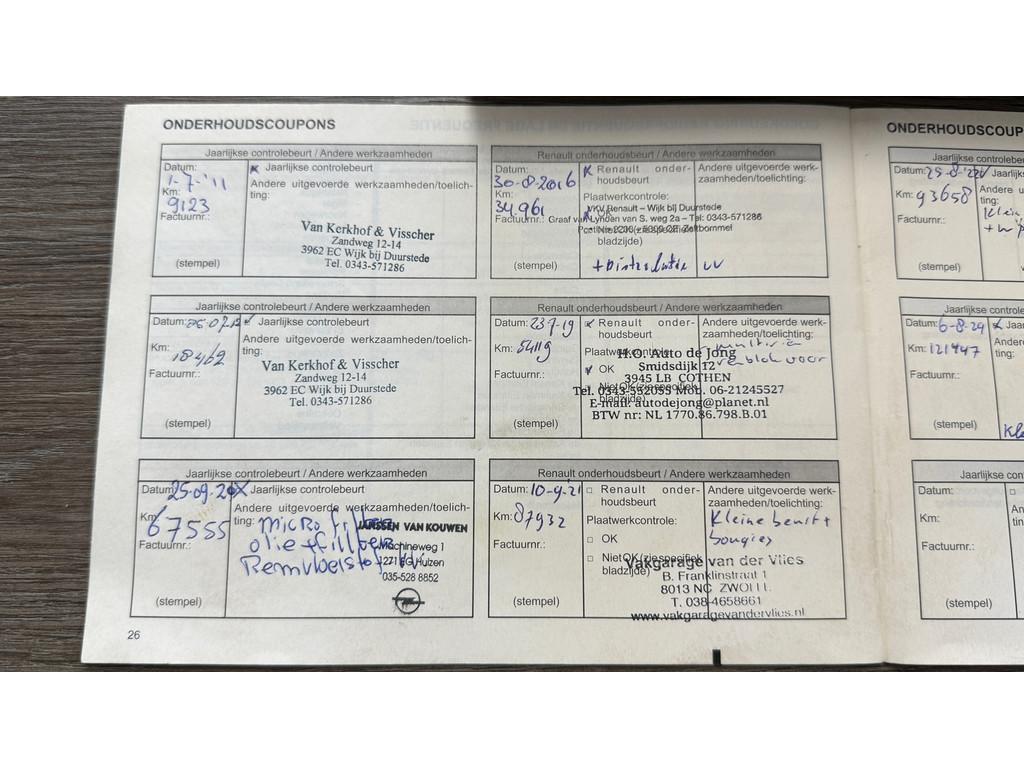 ONDERHOUDSCOUPONS
Jaarlijkse controlebeurt / Andere werkzaamheden
Datum:
1-7-'11
Km:
9123
Factuurnr.:
(stempel)
Jaarlijkse controlebeurt
Andere uitgevoerde werkzaamheden/toelich-
ting:
Van Kerkhof & Visscher
Zandweg 12-14
3962 EC Wijk bij Duurstede
Tel. 0343-571286
Renault onderhoudsbeurt / Andere werkzaamheden
Datum:
30-8-2016
Km:
34.961
Factuurnr.:
(stempel)
Renault onder-
houdsbeurt
Plaatwerkcontrole:
OK
bladzijde)
Andere uitgevoerde werk-
zaamheden/toelichting:
VKV Renault – Wijk bij Duurstede
Graaf van Lynden van S. weg 2a – Tel: 0343-571286
Zaltbommel
Jaarlijkse controlebeurt / Andere werkzaamheden
Datum:
Km:
18462
Factuurnr.:
(stempel)
Jaarlijkse controlebeurt
Andere uitgevoerde werkzaamheden/toelich-
ting:
Van Kerkhof & Visscher
Zandweg 12-14
3962 EC Wijk bij Duurstede
Tel. 0343-571286
Renault onderhoudsbeurt / Andere werkzaamheden
Datum: 23-7-19
Km: 54119
Factuurnr.:
(stempel)
Renault onder-
houdsbeurt
OK
Niet OK (zie specifiek
bladzijde)
Andere uitgevoerde werk-
zaamheden/toelichting:
voor
H.O. Auto de Jong
Smidsdijk 12
3945 LB COTHEN
Tel. 0343-552055 Mob. 06-21245527
E-mail: autodejong@planet.nl
BTW nr: NL 1770.86.798.B.01
Jaarlijkse controlebeurt / Andere werkzaamheden
Datum: 25-09-20
Km:
67555
Factuurnr.:
(stempel)
Jaarlijkse controlebeurt
Andere uitgevoerde werkzaamheden/toelich-
ting: Micro filter
olie + filter
Remvloeistof
JANSSEN VAN KOUWEN
Machineweg 1
1271 EG Huizen
035-528 8852
Renault onderhoudsbeurt / Andere werkzaamheden
Datum: 10-4-'21
Km: 87932
Factuurnr.:
(stempel)
Renault onder-
houdsbeurt
Plaatwerkcontrole:
OK
Niet OK (zie specifiek
bladzijde)
Andere uitgevoerde werk-
zaamheden/toelichting:
Kleine beurt +
bougies
Vakgarage van der Vlies
B. Franklinstraat 1
8013 NC ZWOLLE
T. 038-4658661
www.vakgaragevandervlies.nl
26
ONDERHOUDSCOUP
Jaarlijkse controlebe
Datum:
Km: 93658
Factuurnr.:
(stempel)
Jaarlijkse
Andere u
ting:
Klein
Jaarlijkse controlebe
Datum:
6-8-24
Km:
121447
Factuurnr.:
(stempel)
Jaarlijk
Andere
ting:
Kle
Jaarlijkse controleb
Datum:
Km:
Factuurnr.:
(stempel)
Jaarli
Ander
ting: